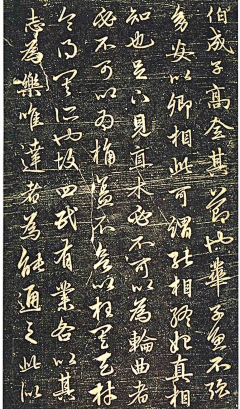 伯成子高全其節也華子魚不强
幼安以卿相此可謂能相終始真相
知也足下見直木必不可以為輪曲者
必不可以為桷蓋不欲以枉其天材
令得其所也故四民有業各以其
志為樂唯達者為能通之此似